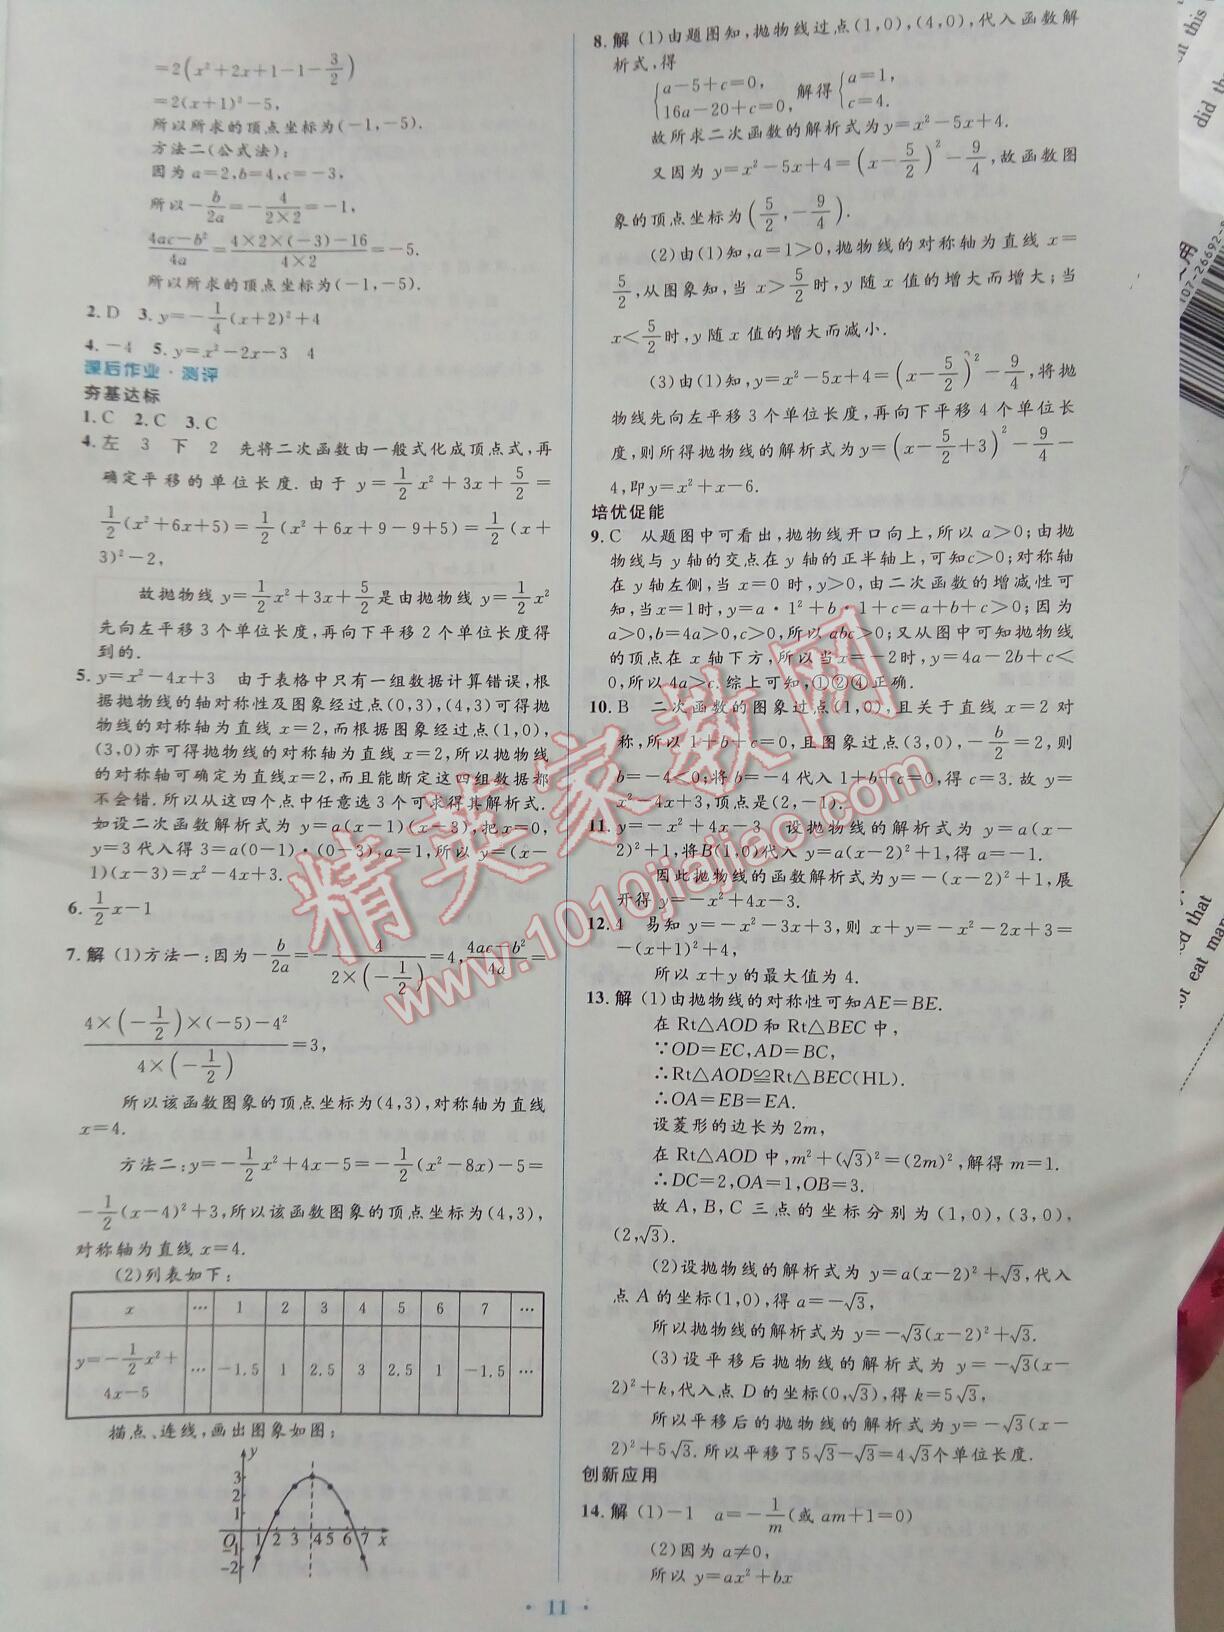 =2(x²+2x+1-1-3/2)
=2(x+1)²-5,
所以所求的顶点坐标为(-1,-5).
方法二(公式法):
因为a=2,b=4,c=-3,
所以-b/2a=-4/(2×2)=-1,
(4ac-b²)/4a=(4×2×(-3)-16)/(4×2)=-5.
所以所求的顶点坐标为(-1,-5).
2.D 3.y=-1/4(x+2)²+4
4.-4 5.y=x²-2x-3 4
课后作业·测评
夯基达标
1.C 2.C 3.C
4.左 3 下 2 先将二次函数由一般式化成顶点式,再
确定平移的单位长度.由于y=1/2x²+3x+5/2=
1/2(x²+6x+5)=1/2(x²+6x+9-9+5)=1/2(x+
3)²-2,
故抛物线y=1/2x²+3x+5/2是由抛物线y=1/2x²
先向左平移3个单位长度,再向下平移2个单位长度得
到的.
5.y=x²-4x+3 由于表格中只有一组数据计算错误,根
据抛物线的轴对称性及图象经过点(0,3),(4,3)可得抛
物线的对称轴为直线x=2,而根据图象经过点(1,0),
(3,0)亦可得抛物线的对称轴为直线x=2,所以抛物线
的对称轴可确定为直线x=2,而且能断定这四组数据都
不会错.所以从这四个点中任意选3个可求得其解析式.
如设二次函数解析式为y=a(x-1)(x-3),把x=0,
y=3代入得3=a(0-1)·(0-3),a=1,所以y=(x-
1)(x-3)=x²-4x+3.
6.1/2x-1
7.解 (1)方法一:因为-b/2a=-4/(2×(-1/2))=4,(4ac-b²)/4a=
(4×(-1/2)×(-5)-4²)/(4×(-1/2))=3,
所以该函数图象的顶点坐标为(4,3),对称轴为直线
x=4.
方法二:y=-1/2x²+4x-5=-1/2(x²-8x)-5=
-1/2(x-4)²+3,所以该函数图象的顶点坐标为(4,3),
对称轴为直线x=4.
(2)列表如下:
x … 1 2 3 4 5 6 7 …
y=-1/2x²+4x-5 … -1.5 1 2.5 3 2.5 1 -1.5 …
描点、连线,画出图象如图:
y
3
2
1
O 1 2 3 4 5 6 7 x
-1
-2
8.解 (1)由题图知,抛物线过点(1,0),(4,0),代入函数解
析式,得
{a-5+c=0, 16a-20+c=0, 解得{a=1, c=4.
故所求二次函数的解析式为y=x²-5x+4.
又因为y=x²-5x+4=(x-5/2)²-9/4,故函数图
象的顶点坐标为(5/2,-9/4).
(2)由(1)知,a=1>0,抛物线的对称轴为直线x=
5/2,从图象知,当x>5/2时,y随x值的增大而增大;当
x<5/2时,y随x值的增大而减小.
(3)由(1)知,y=x²-5x+4=(x-5/2)²-9/4,将抛
物线先向左平移3个单位长度,再向下平移4个单位长
度,则所得抛物线的解析式为y=(x-5/2+3)²-9/4-
4,即y=x²+x-6.
培优促能
9.C 从题图中可看出,抛物线开口向上,所以a>0;由抛
物线与y轴的交点在y轴的正半轴上,可知c>0;对称轴
在y轴左侧,当x=0时,y>0,由二次函数的增减性可
知,当x=1时,y=a·1²+b·1+c=a+b+c>0;因为
a>0,b=4a>0,c>0,所以abc>0;又从图中可知抛物线
的顶点在x轴下方,所以当x=-2时,y=4a-2b+c<
0,所以4a>c.综上可知,①②④正确.
10.B 二次函数的图象过点(1,0),且关于直线x=2对
称,所以1+b+c=0,且图象过点(3,0),-b/2=2,则
b=-4<0;将b=-4代入1+b+c=0,得c=3.故y=
x²-4x+3,顶点是(2,-1).
11.y=-x²+4x-3 设抛物线的解析式为y=a(x-
2)²+1,将B(1,0)代入y=a(x-2)²+1,得a=-1.
因此抛物线的函数解析式为y=-(x-2)²+1,展
开得y=-x²+4x-3.
12.4 易知y=-x²-3x+3,则x+y=-x²-2x+3=
-(x+1)²+4,
所以x+y的最大值为4.
13.解 (1)由抛物线的对称性可知AE=BE.
在Rt△AOD和Rt△BEC中,
∵OD=EC,AD=BC,
∴Rt△AOD≌Rt△BEC(HL).
∴OA=EB=EA.
设菱形的边长为2m,
在Rt△AOD中,m²+(√3)²=(2m)²,解得m=1.
∴DC=2,OA=1,OB=3.
故A,B,C三点的坐标分别为(1,0),(3,0),
(2,√3).
(2)设抛物线的解析式为y=a(x-2)²+√3,代入
点A的坐标(1,0),得a=-√3,
所以抛物线的解析式为y=-√3(x-2)²+√3.
(3)设平移后抛物线的解析式为y=-√3(x-
2)²+k,代入点D的坐标(0,√3),得k=5√3,
所以平移后的抛物线的解析式为y=-√3(x-
2)²+5√3.所以平移了5√3-√3=4√3个单位长度.
创新应用
14.解 (1)-1 a=-1/m(或am+1=0)
(2)因为a≠0,
所以y=ax²+bx
· 11 ·
精英家教网
www.1010jiajiao.com